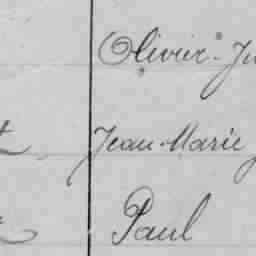 Olivier-Ju
Jean-Marie
Paul